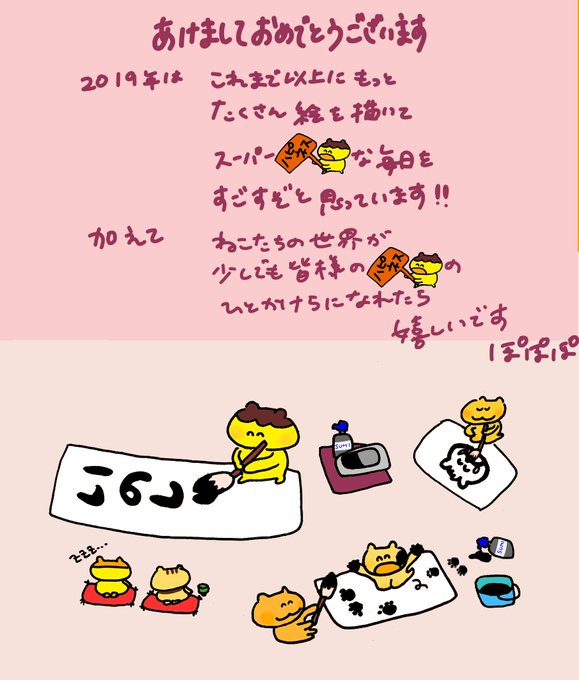 あけましておめでとうございます
2019年は これまで以上に もっと
たくさん 絵を 描いて
スーパーハピネスな毎日を
すごすぞと 思っています!!
加えて ねこたちの世界が
少しでも皆様のハピネスの
ひとかけらになれたら
嬉しいです
ぽぽぽ
SUMI
SUMI